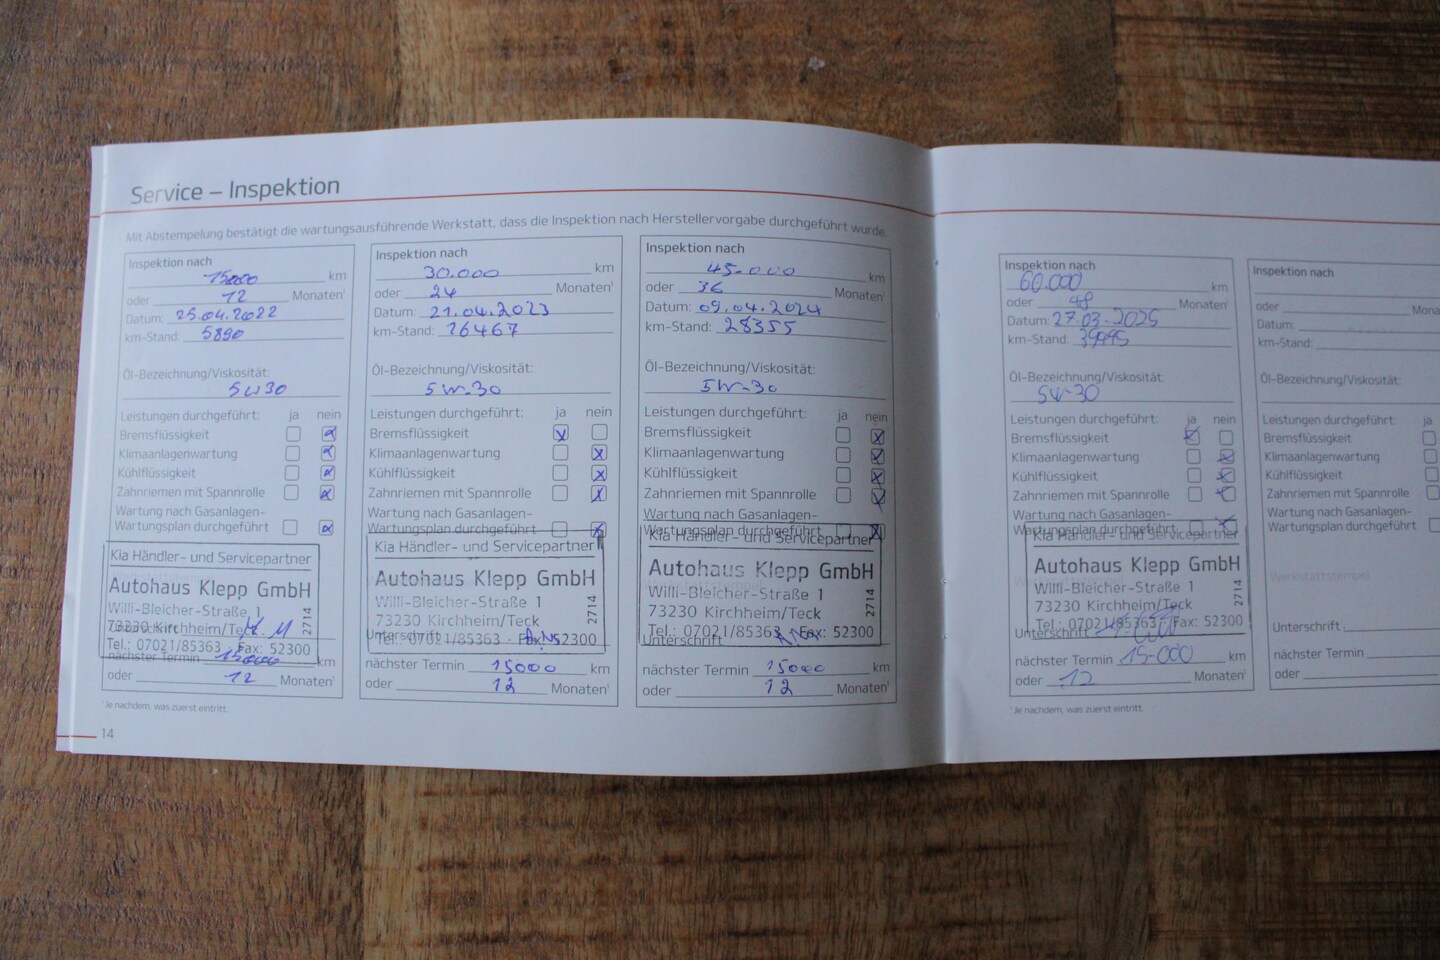 Service – Inspektion
Mit Abstempelung bestätigt die wartungsausführende Werkstatt, dass die Inspektion nach Herstellervorgabe durchgeführt wurde.
Inspektion nach
15000 km
oder 12 Monaten¹
Datum: 25.04.2022
km-Stand: 5890
Öl-Bezeichnung/Viskosität:
5W30
Leistungen durchgeführt: ja nein
Bremsflüssigkeit
Klimaanlagenwartung
Kühlflüssigkeit
Zahnriemen mit Spannrolle
Wartung nach Gasanlagen-
Wartungsplan durchgeführt
Kia Händler- und Servicepartner
Autohaus Klepp GmbH
Willi-Bleicher-Straße 1
73230 Kirchheim/Teck
Tel.: 07021/85363 · Fax: 52300
2714
Unterschrift
nächster Termin 15000 km
oder 12 Monaten¹
¹Je nachdem, was zuerst eintritt.
14
Inspektion nach
30.000 km
oder 24 Monaten¹
Datum: 21.04.2023
km-Stand: 16467
Öl-Bezeichnung/Viskosität:
5W-30
Leistungen durchgeführt: ja nein
Bremsflüssigkeit
Klimaanlagenwartung
Kühlflüssigkeit
Zahnriemen mit Spannrolle
Wartung nach Gasanlagen-
Wartungsplan durchgeführt
Kia Händler- und Servicepartner
Autohaus Klepp GmbH
Willi-Bleicher-Straße 1
73230 Kirchheim/Teck
Tel.: 07021/85363 · Fax: 52300
2714
Unterschrift
nächster Termin 15000 km
oder 12 Monaten¹
Inspektion nach
45.000 km
oder 36 Monaten¹
Datum: 09.04.2024
km-Stand: 28355
Öl-Bezeichnung/Viskosität:
5W-30
Leistungen durchgeführt: ja nein
Bremsflüssigkeit
Klimaanlagenwartung
Kühlflüssigkeit
Zahnriemen mit Spannrolle
Wartung nach Gasanlagen-
Wartungsplan durchgeführt
Kia Händler- und Servicepartner
Autohaus Klepp GmbH
Willi-Bleicher-Straße 1
73230 Kirchheim/Teck
Tel.: 07021/85363 · Fax: 52300
2714
Unterschrift
nächster Termin 15000 km
oder 12 Monaten¹
Inspektion nach
60.000 km
oder 48 Monaten¹
Datum: 27.03.2025
km-Stand:
Öl-Bezeichnung/Viskosität:
5W-30
Leistungen durchgeführt: ja nein
Bremsflüssigkeit
Klimaanlagenwartung
Kühlflüssigkeit
Zahnriemen mit Spannrolle
Wartung nach Gasanlagen-
Wartungsplan durchgeführt
Kia Händler- und Servicepartner
Autohaus Klepp GmbH
Willi-Bleicher-Straße 1
73230 Kirchheim/Teck
Tel.: 07021/85363 · Fax: 52300
2714
Unterschrift
nächster Termin 15.000 km
oder 12 Monaten¹
¹Je nachdem, was zuerst eintritt.
Inspektion nach
oder Mona
Datum:
km-Stand:
Öl-Bezeichnung/Viskosität:
Leistungen durchgeführt: ja
Bremsflüssigkeit
Klimaanlagenwartung
Kühlflüssigkeit
Zahnriemen mit Spannrolle
Wartung nach Gasanlagen-
Wartungsplan durchgeführt
Werkstattstempel
Unterschrift
nächster Termin
oder